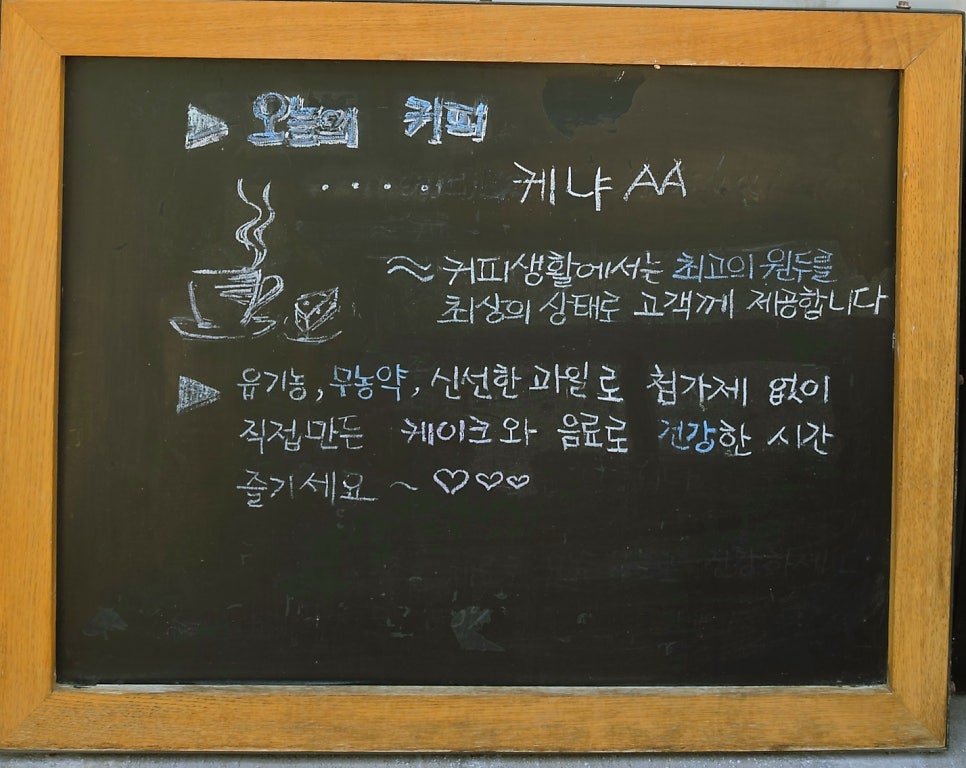 ▶ 오늘의 커피
.... 케냐 AA
~ 커피생활에서는 최고의 원두를
최상의 상태로 고객께 제공합니다
▶ 유기농, 무농약, 신선한 과일로 첨가제 없이
직접만든 케이크와 음료로 건강한 시간
즐기세요 ~ ♡♡♡